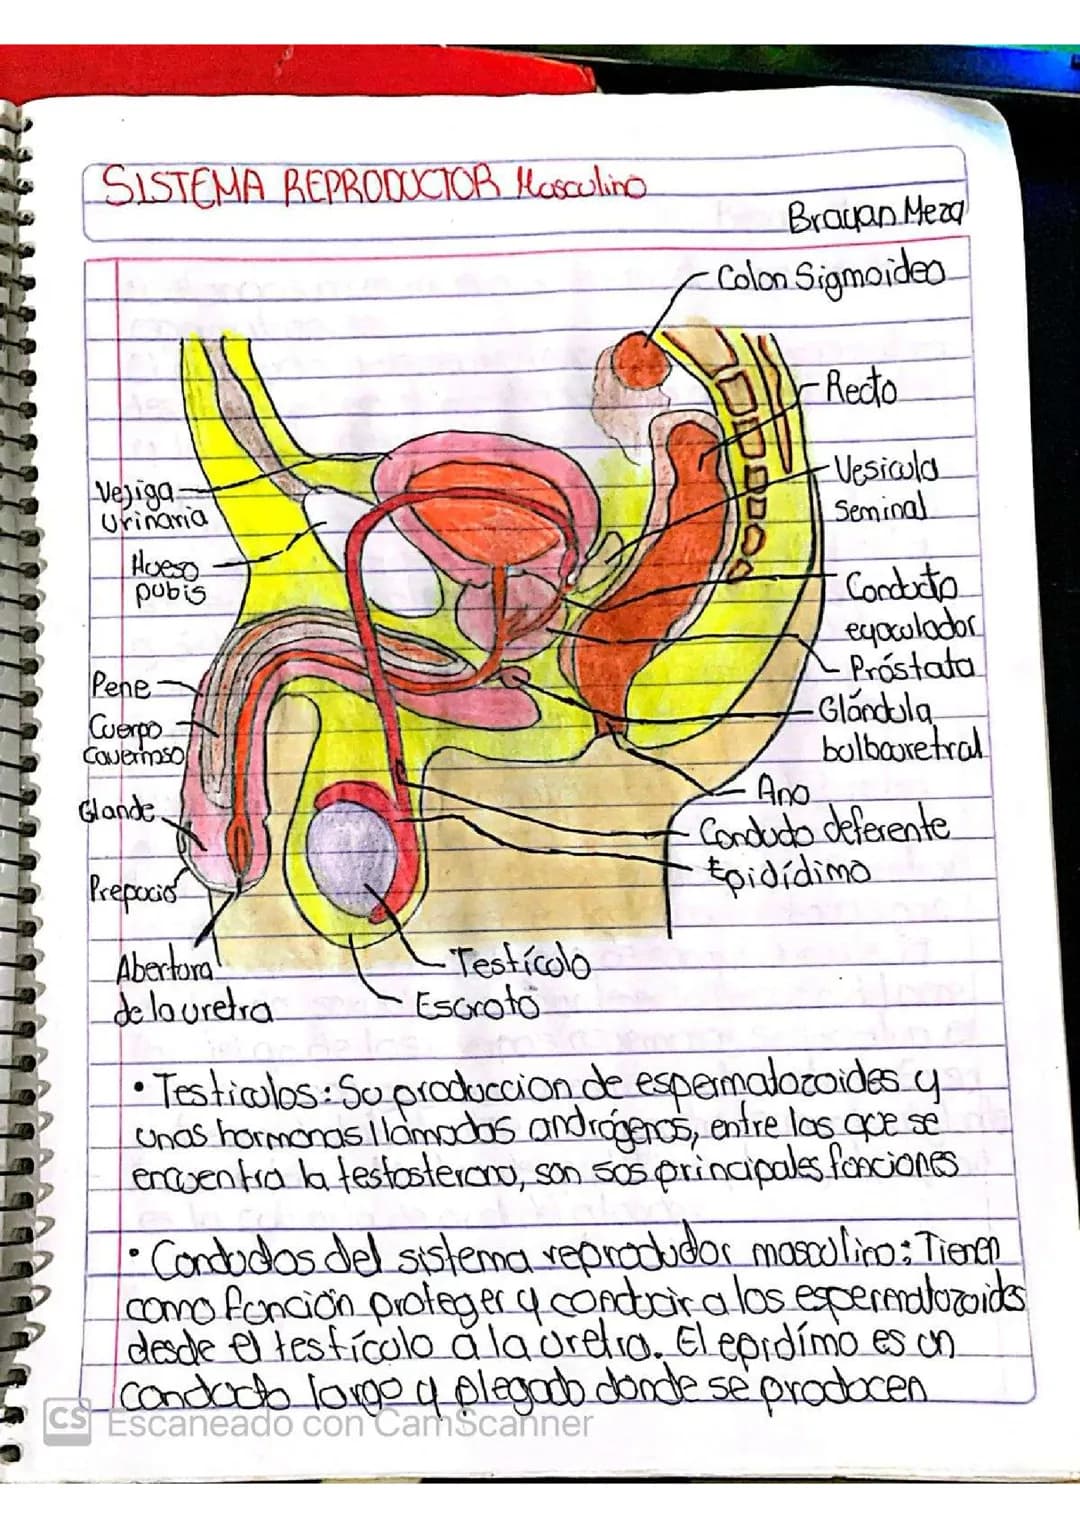 SISTEMA REPRODUCTOR Masculino
Brayan Meza
Colon Sigmoideo
Recto
Vesicula
Seminal
Conducto
eyaculador
Próstata
Glándula
bulbouretral
Ano
Conducto deferente
Epidídimo
Vejiga
Urinaria
Hueso
pubis
Pene
Cuerpo
Cavernoso
Glande
Prepucio
Abertura
de la uretra
Testículo
Escroto
• Testiculos: Su produccion de espermatozoides y
unas hormonas llamadas andrógenos, entre las que se
encuentra la testosterona, son sus principales funciones
• Conductos del sistema reproductor masculino: Tienen
como función proteger y conducir a los espermatozoides
desde el testículo a la uretra. El epidímo es un
conducto largo y plegado donde se producen
CS Escaneado con CamScanner